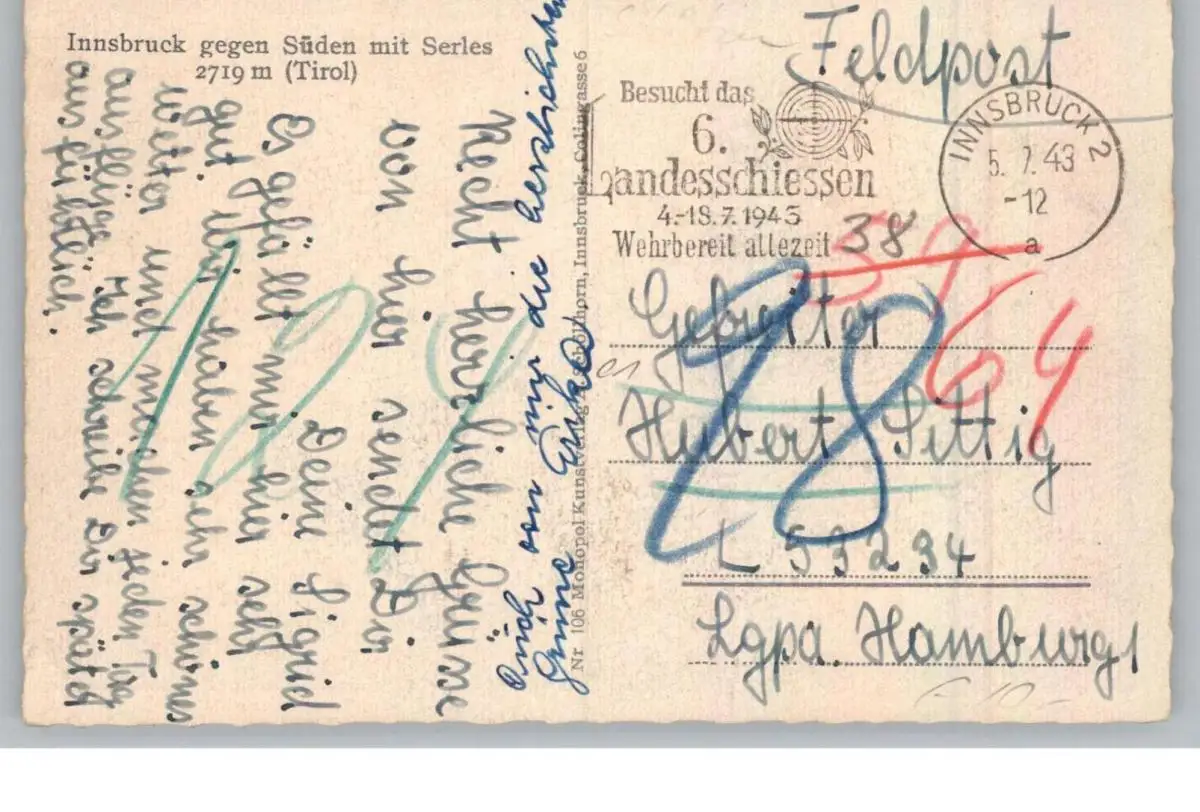 Innsbruck gegen Süden mit Serles
2719 m (Tirol)
Recht herzliche Grüsse
von hier sendet Dir
Deine Sigrid
Es gefällt mir hier sehr
gut. Wir haben sehr schönes
Wetter und machen jeden Tag
Ausflüge. Ich schreibe Dir später
ausführlich.
Auch von mir die herzlichsten
Grüsse Erika
Nr 106 Monopol Kunstverlag R. Schöllhorn, Innsbruck, Colingasse 6
Feldpost
Besucht das
6.
Landesschiessen
4.-18.7.1943
Wehrbereit allezeit
INNSBRUCK 2
5.7.43
-12
a
38
39
64
98
Gefreiter
Hubert Sittig
L 53234
Lgpa. Hamburg 1